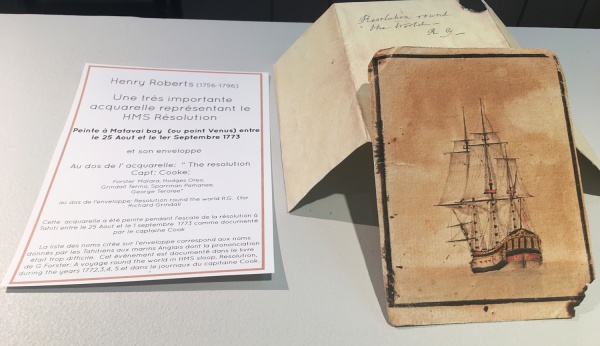 Henry Roberts (1756-1796)
Une très importante
acquarelle représentant le
HMS Résolution
Peinte à Matavai bay (ou point Venus) entre
le 25 Aout et le 1er Septembre 1773
et son enveloppe
Au dos de l'acquarelle: "The resolution
Capt: Cooke;
Forster Matara, Hodges Oreo,
Grindall Terino, Sparrman Pamanee,
George Teroree"
au dos de l'enveloppe: Resolution round the world R.G. (for
Richard Grindall
Cette acquarelle a été peinte pendant l'escale de la résolution à
Tahiti entre le 25 Aout et le 1 septembre 1773 comme documenté
par le capitaine Cook
La liste des noms citée sur l'enveloppe correspond aux noms
donnés par les Tahitiens aux marins Anglais dont la prononciation
était trop difficile. Cet événement est documenté dans le livre
de G Forster: A voyage round the world in HMS sloop, Resolution,
during the years 1772,3,4, 5 et dans le journal du capitaine Cook
Resolution round
the World
R G